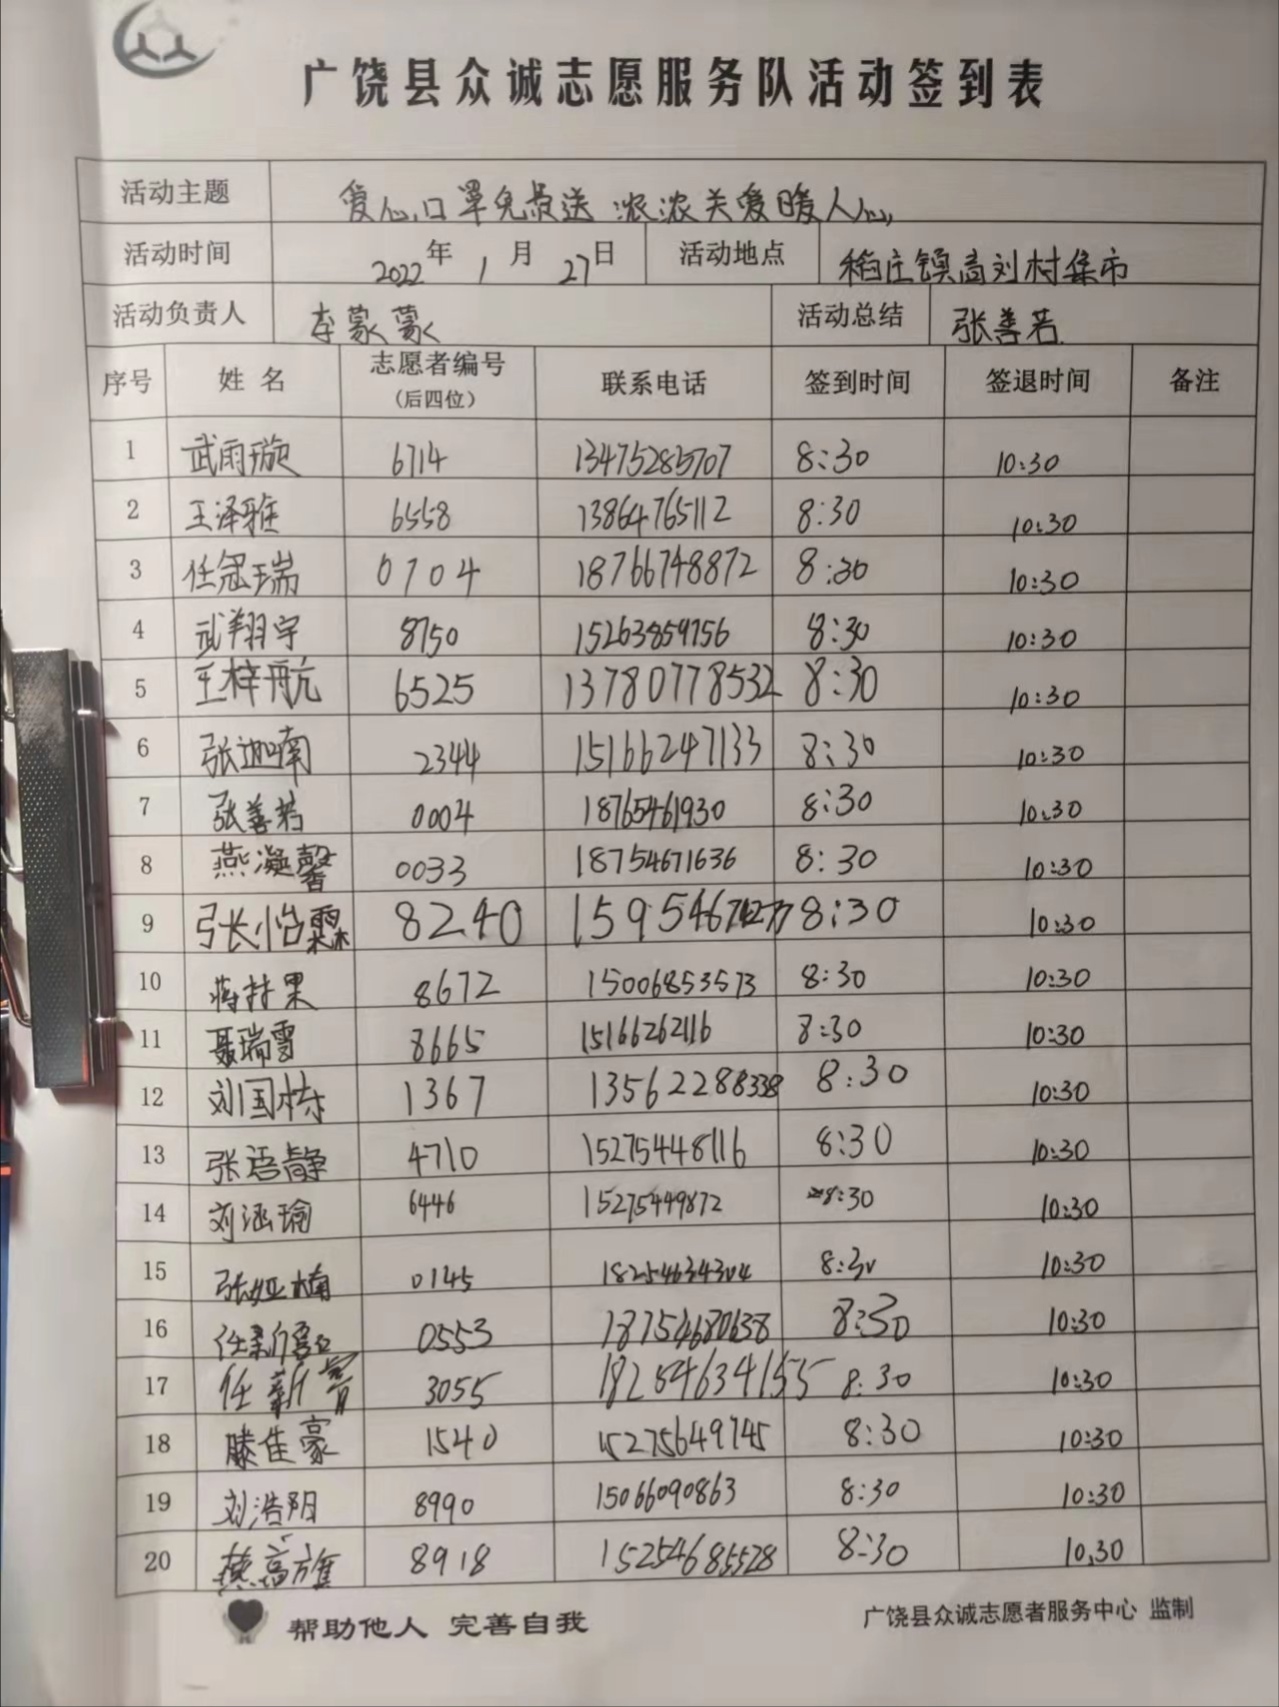 广饶县众诚志愿服务队活动签到表
活动主题 爱心口罩免费送 浓浓关爱暖人心
活动时间 2022年1月27日 活动地点 稻庄镇高刘村集市
活动负责人 李蒙蒙 活动总结 张善若
序号 姓名 志愿者编号(后四位) 联系电话 签到时间 签退时间 备注
1 武雨璇 6714 13475285707 8:30 10:30
2 王泽雅 6558 13864765112 8:30 10:30
3 任冠瑞 0704 18766748872 8:30 10:30
4 武翔宇 8750 15263859756 8:30 10:30
5 王梓航 6525 13780778532 8:30 10:30
6 张迦南 2344 15166247133 8:30 10:30
7 张善若 0004 18765461930 8:30 10:30
8 燕凝馨 0033 18754671636 8:30 10:30
9 张怡霖 8240 8:30 10:30
10 蒋林果 8672 15006853573 8:30 10:30
11 聂瑞雪 8665 15166262116 8:30 10:30
12 刘国栋 1367 13562288338 8:30 10:30
13 张语静 4710 15275448116 8:30 10:30
14 刘涵瑜 6446 15275449872 8:30 10:30
15 张娅楠 0145 18254634304 8:30 10:30
16 0553 18754680638 8:30 10:30
17 任薪霄 3055 18254634155 8:30 10:30
18 滕佳豪 1540 15275649745 8:30 10:30
19 刘浩阳 8990 15066090863 8:30 10:30
20 燕高雄 8918 15254685528 8:30 10:30
帮助他人 完善自我 广饶县众诚志愿者服务中心 监制